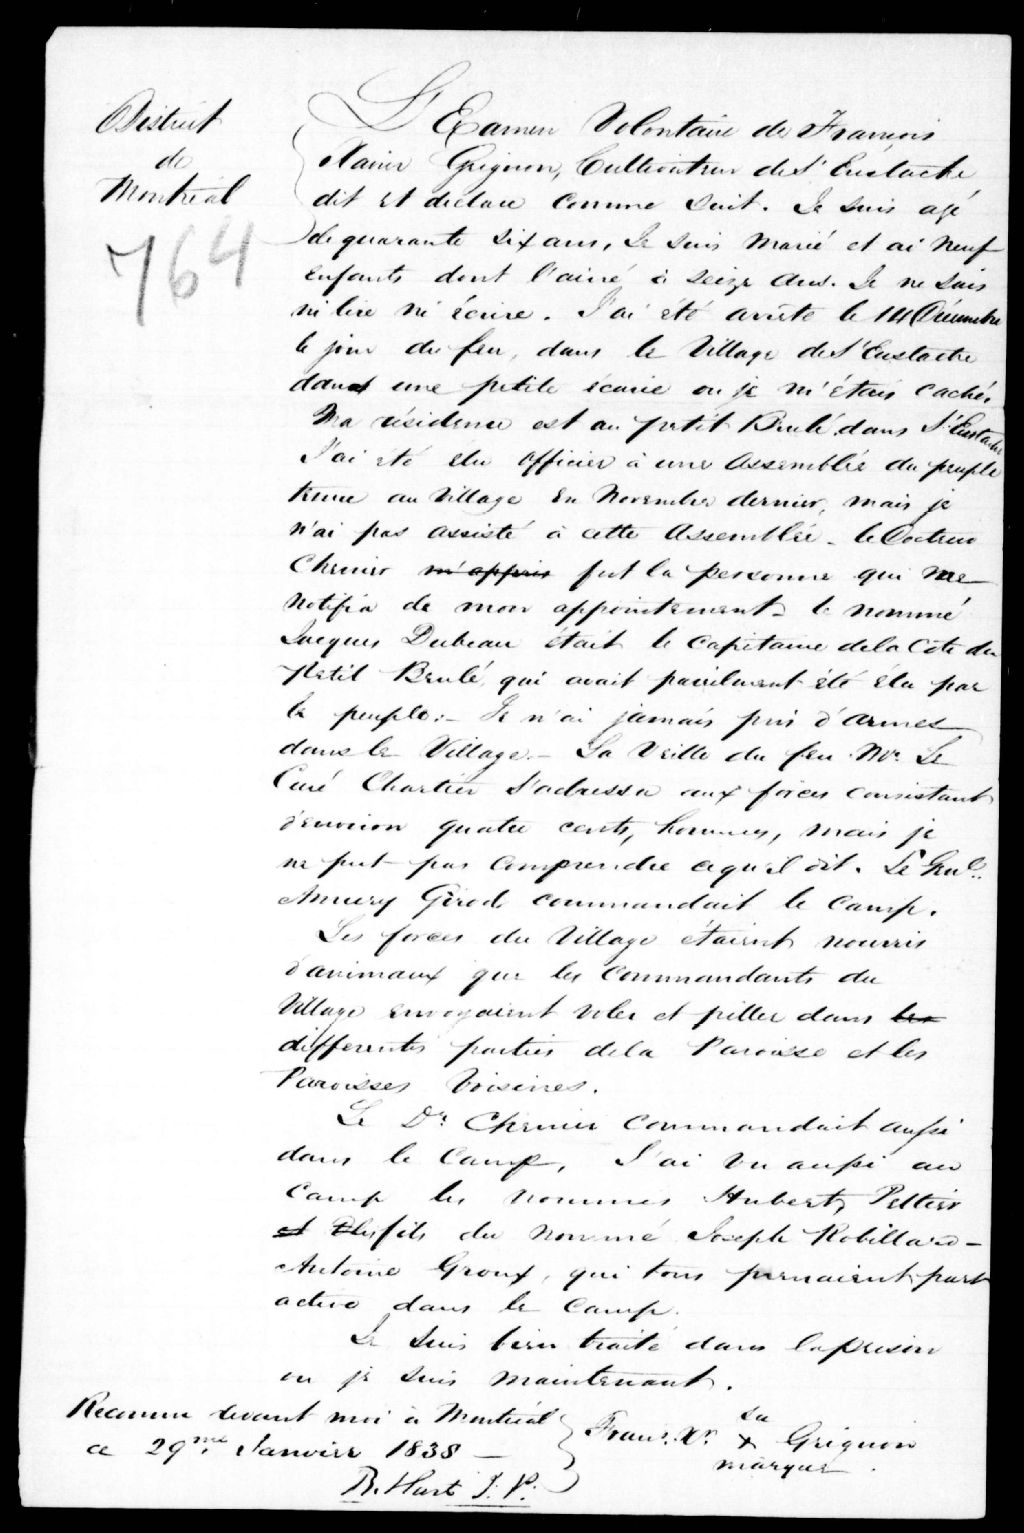 District
de
Montréal
764
L'Examen Volontaire de François
Xavier Grignon, Cultivateur de St Eustache
dit et declare comme suit. Je suis agé
de quarante six ans, Je suis marié et ai neuf
enfants dont l'ainé à seize ans. Je ne sais
ni lire ni écrire. J'ai été arrêté le 14 Décembre
le jour du feu, dans le Village de St Eustache
dans une petite écurie ou je m'étais caché.
Ma résidence est au petit Brulé dans St Eustache
J'ai été élu officier à une Assemblée du peuple
tenue au Village en Novembre dernier, mais je
n'ai pas assisté à cette Assemblée - le Docteur
Chenier m'appris fut la personne qui me
notifia de mon appointement - le nommé
Jacques Dubeau était le Capitaine de la Côte du
Petit Brulé, qui avait pareillement été élu par
le peuple :- Je n'ai jamais pris d'armes
dans le Village - La Veille du feu Mr. Le
Curé Chartier s'adressa aux forces consistant
d'environ quatre cents, hommes, mais je
ne put pas comprendre cequ'il dit. Le Genl.
Amury Girod commandait le Camp.
Les forces du Village étaient nourris
d'animaux que les Commandants du
Village envoyaient voler et piller dans les
differentes parties de la Paroisse et les
Paroisses Voisines.
Le Dr. Chenier Commandait aussi
dans le Camp, J'ai vu aussi au
Camp les nommés Hubert, Peltier
et fils du nommé Joseph Robillard -
Antoine Groux, qui tous prenaient part
active dans le Camp.
Je suis bien traité dans la prison
ou je suis maintenant.
Reconnu devant moi à Montréal
ce 29me. Janvier 1838 -
B. Hart J. P.
Frans. Xr. + Grignon
sa
marque.